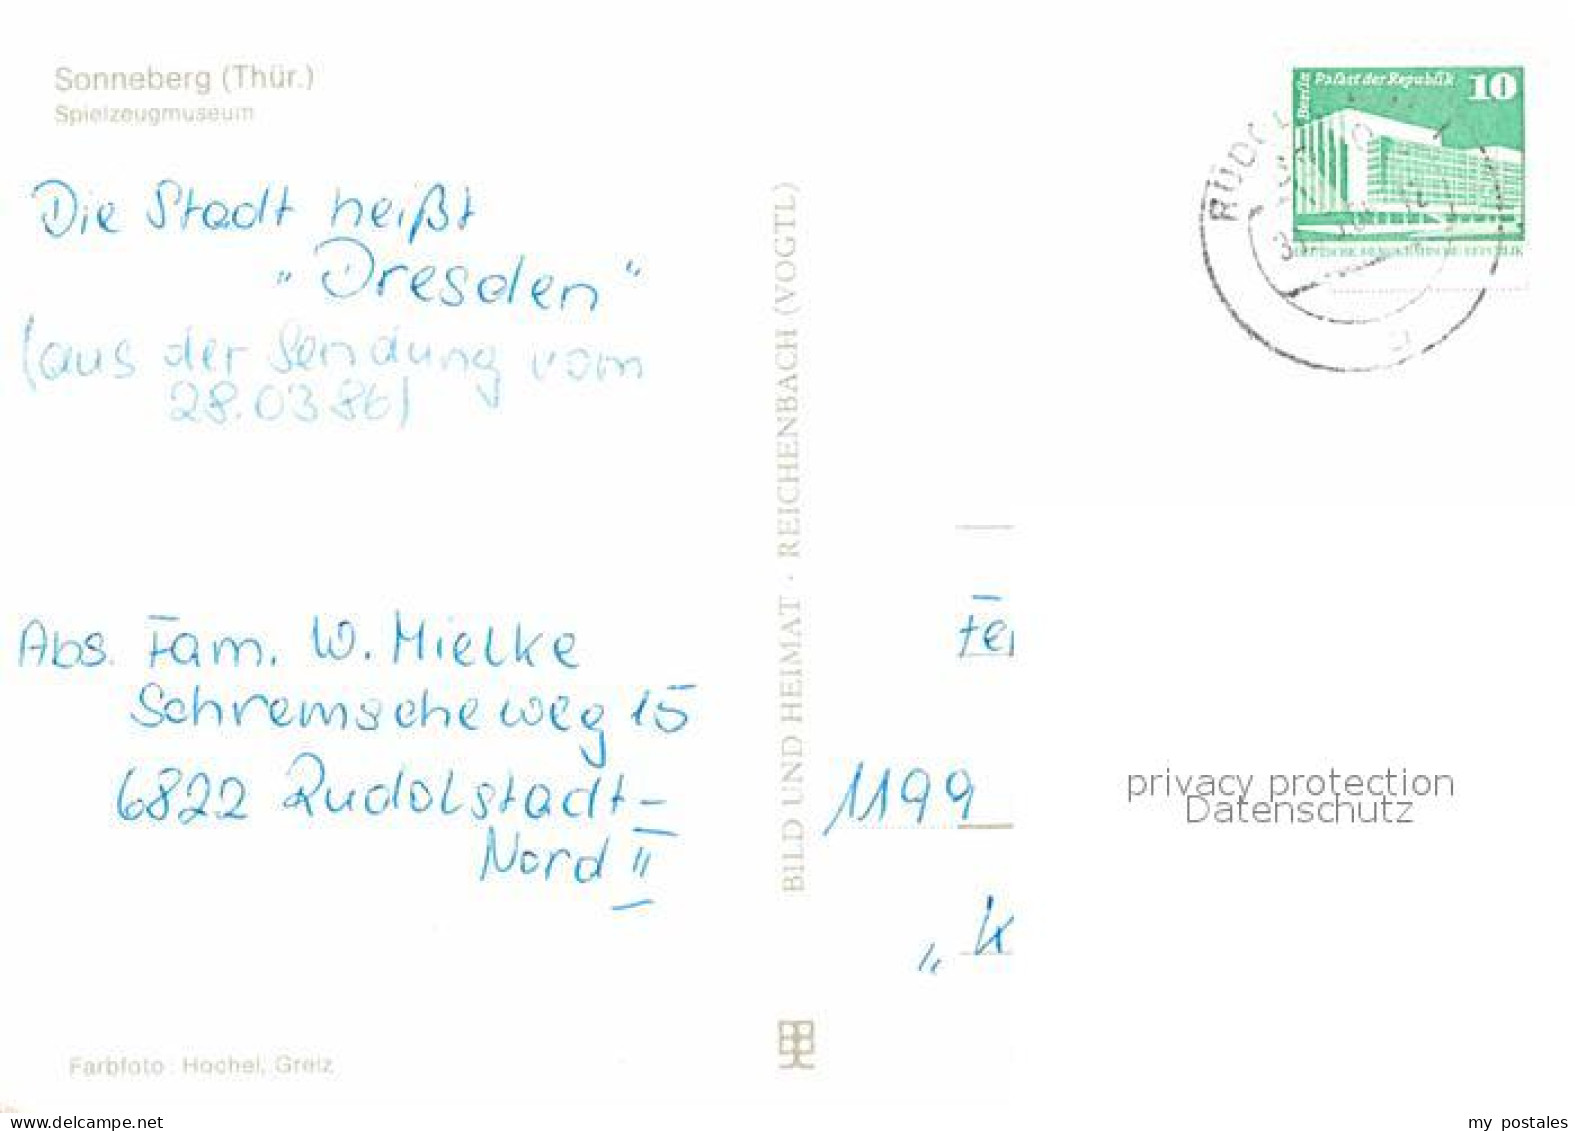 Sonneberg (Thür.)
Spielzeugmuseum
Die Stadt heißt
"Dresden"
(aus der Sendung vom
28.03.86)
Abs. Fam. W. Mielke
Schremscheweg 15
6822 Rudolstadt-
Nord II
Farbfoto: Hochel, Greiz
BILD UND HEIMAT · REICHENBACH (VOGTL)
Berlin
Palast der Republik 10
DEUTSCHE DEMOKRATISCHE REPUBLIK
1199
privacy protection
Datenschutz
www.delcampe.net
my_postales